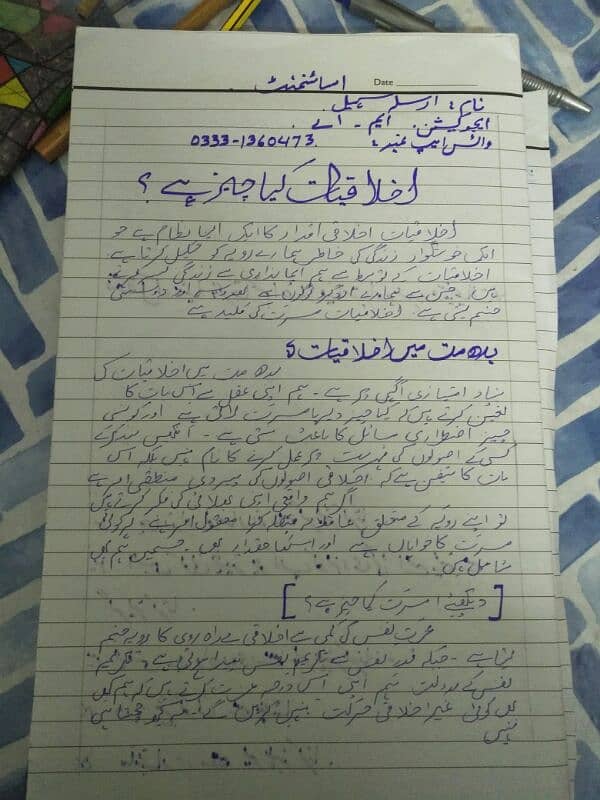 اسائنمنٹ
Date
نام: ارسلہ سہیل
ایجوکیشن: ایم - اے
واٹس ایپ نمبر: 0333-1360473
اخلاقیات کیا چیز ہے؟
اخلاقیات اخلاقی اقدار کا ایک ایسا نظام ہے جو
ایک خوشگوار زندگی کی خاطر ہمارے رویہ کو تشکیل کرتا ہے
اخلاقیات کے ذریعے ہم ایمانداری سے زندگی بسر کرتے
ہیں، جس سے ہمارے اردگرد لوگوں سے اور دوستی
جنم لیتی ہے۔ اخلاقیات مسرت کی کلید ہے
بدھ مت میں اخلاقیات:
بدھ مت میں اخلاقیات کی
بنیاد امتیازی آگہی پر ہے - ہم اپنی عقل سے اس بات کا
تعین کرتے ہیں کہ کیا چیز دیرپا مسرت لاتی ہے اور کونسی
چیز اضطراری مسائل کا باعث بنتی ہے - آنکھیں بند کرکے
کسی کے اصولوں کی فہرست پر عمل کرنے کا نام نہیں بلکہ اس
بات کا متیقن ہے کہ اخلاقی اصولوں کی پیروی منطقی امر ہے
اگر ہم واقعی اپنی بھلائی کی فکر کرتے ہیں
تو اپنے رویہ کے متعلق عاقلانہ معقول امر ہے۔ ہر کوئی
مسرت کا خواہاں ہے اور اسکا حقدار بھی - جسمیں ہم بھی
شامل ہیں۔
[دیکھئے: مسرت کیا چیز ہے؟]
عزت نفس کی کمی سے اخلاقی بے راہ روی کا رویہ جنم
لیتا ہے - جبکہ قدر نفس سے پیدا ہوتی ہے۔
نفس کے بدولت ہم اپنی اس درجہ عزت کرتے ہیں کہ ہم کبھی
بھی کوئی غیر اخلاقی حرکت نہیں کریں گے۔